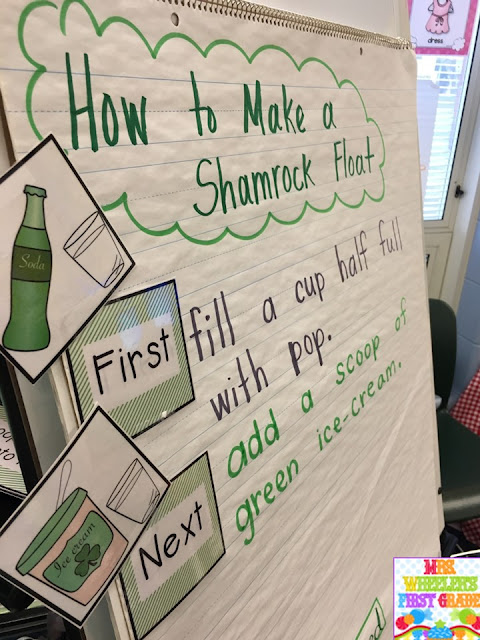 How to Make a
Shamrock Float
dress
Soda
First
fill a cup half full
with pop.
Next
add a scoop of
green ice-cream.
Ice cream
MRS.
WHEELER'S
FIRST GRADE